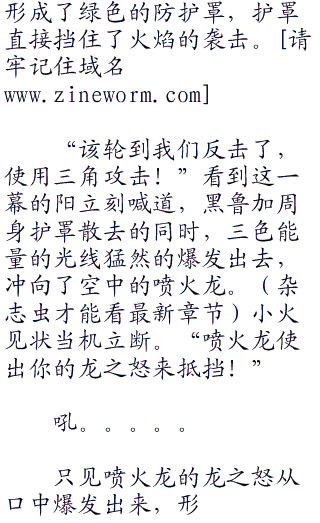 形成了绿色的防护罩，护罩
直接挡住了火焰的袭击。[请
牢记住域名
www.zineworm.com]
“该轮到我们反击了，
使用三角攻击！”看到这一
幕的阳立刻喊道，黑鲁加周
身护罩散去的同时，三色能
量的光线猛然的爆发出去，
冲向了空中的喷火龙。（杂
志虫才能看最新章节）小火
见状当机立断。“喷火龙使
出你的龙之怒来抵挡！”
吼。。。。。
只见喷火龙的龙之怒从
口中爆发出来，形